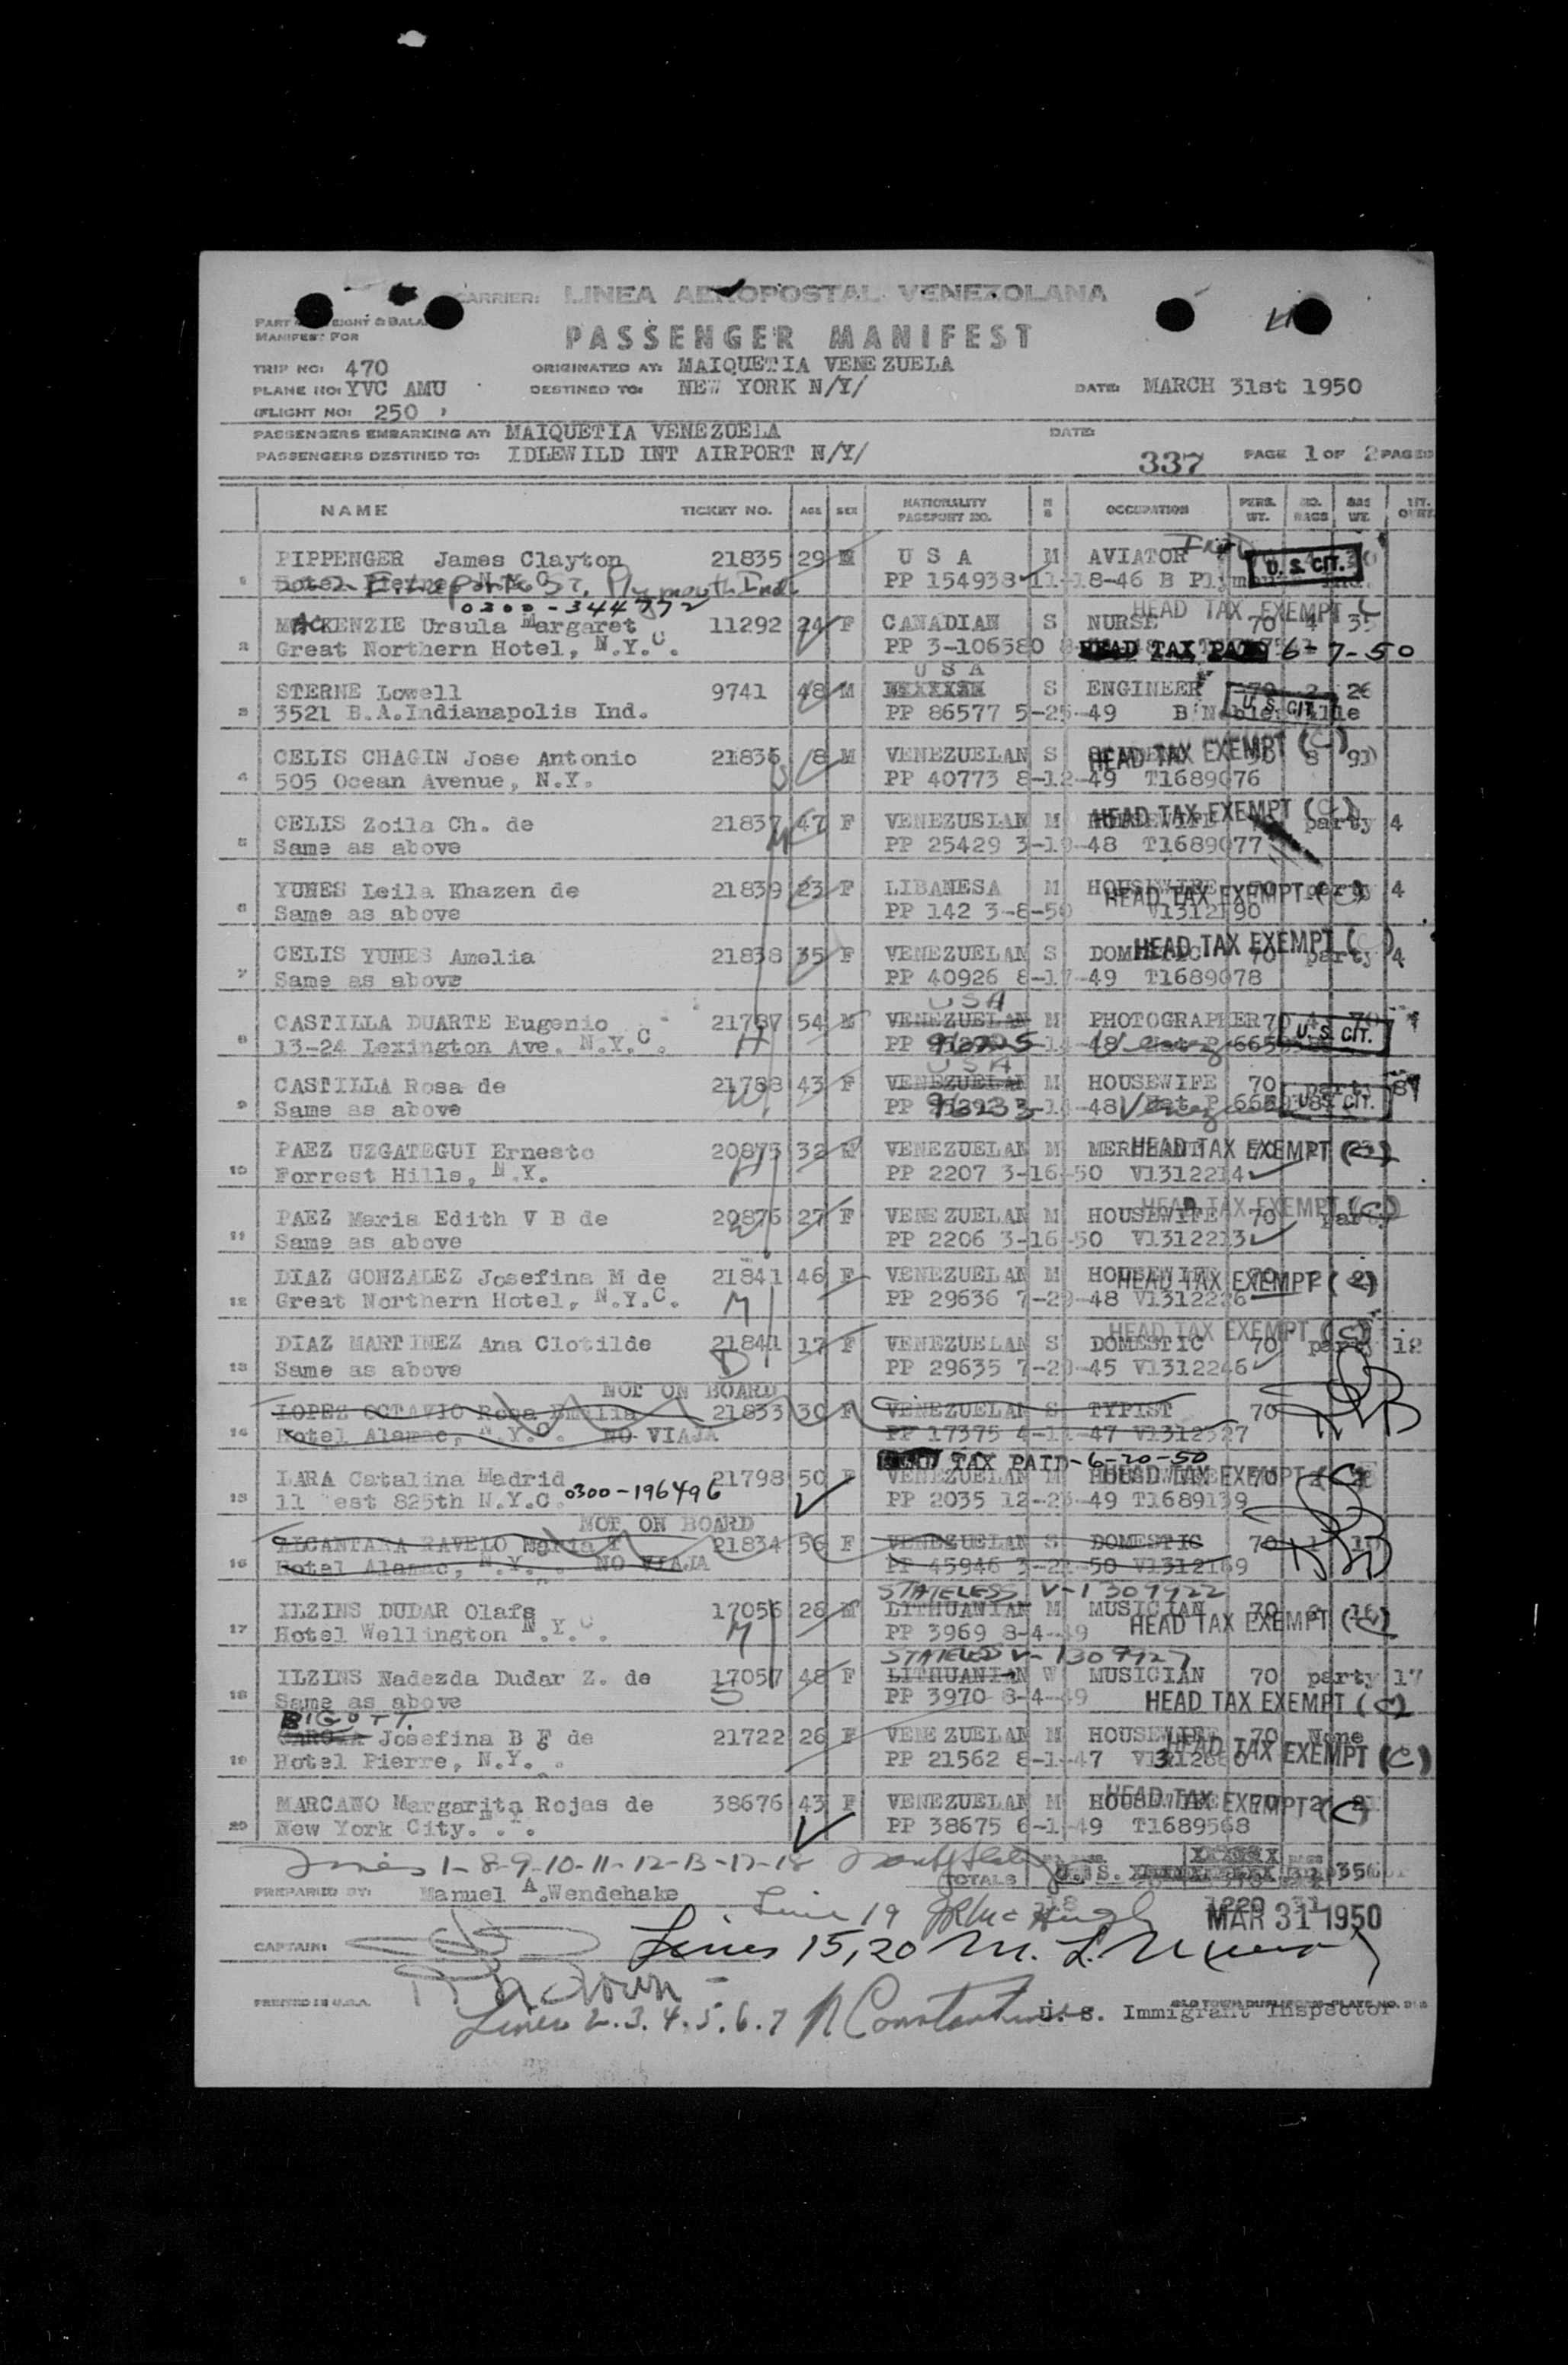 CARRIER: LINEA AEROPOSTAL VENEZOLANA
PASSENGER MANIFEST
MANIFEST FOR
TRIP NO: 470 ORIGINATED AT: MAIQUETIA VENEZUELA
PLANE NO: YVC AMU DESTINED TO: NEW YORK N/Y/ DATE: MARCH 31st 1950
(FLIGHT NO: 250 )
PASSENGERS EMBARKING AT: MAIQUETIA VENEZUELA DATE:
PASSENGERS DESTINED TO: IDLEWILD INT AIRPORT N/Y/ 337 PAGE 1 OF 2 PAGES
NAME TICKET NO. AGE SEX NATIONALITY PASSPORT NO. M S OCCUPATION PERS. WT. NO. BAGS BAG WT.
PIPPENGER James Clayton 21835 29 M U S A M AVIATOR
1 Plymouth Ind. PP 154938 11-18-46 B U.S. CIT.
0300-344772 HEAD TAX EXEMPT
MACKENZIE Ursula Margaret 11292 24 F CANADIAN S NURSE 70 4 35
2 Great Northern Hotel, N.Y.C. PP 3-106380 HEAD TAX PAID 6-7-50
U S A
STERNE Lowell 9741 48 M S ENGINEER 70 2 26
3 3521 B.A.Indianapolis Ind. PP 86577 5-25-49 B U.S. CIT.
CELIS CHAGIN Jose Antonio 21836 8 M VENEZUELAN S HEAD TAX EXEMPT (C)
4 505 Ocean Avenue, N.Y. PP 40773 8-12-49 T1689076
CELIS Zoila Ch. de 21837 47 F VENEZUELAN M HOUSEWIFE HEAD TAX EXEMPT (C) party 4
5 Same as above PP 25429 3-10-48 T1689077
YUNES Leila Khazen de 21839 23 F LIBANESA M HOUSEWIFE party 4
6 Same as above PP 142 3-8-50 HEAD TAX EXEMPT (C)
CELIS YUNES Amelia 21838 35 F VENEZUELAN S DOMESTIC HEAD TAX EXEMPT (C) 70 party 4
7 Same as above PP 40926 8-17-49 T1689078
USA
CASTILLA DUARTE Eugenio 21787 54 M VENEZUELAN M PHOTOGRAPHER 70 4 70
8 13-24 Lexington Ave. N.Y.C. H PP U.S. CIT.
USA
CASTILLA Rosa de 21788 43 F VENEZUELAN M HOUSEWIFE 70 party 8
9 Same as above W PP U.S. CIT.
PAEZ UZGATEGUI Ernesto 20875 32 M VENEZUELAN M HEAD TAX EXEMPT (C)
10 Forrest Hills, N.Y. H PP 2207 3-16-50 V1312214
PAEZ Maria Edith V B de 20876 27 F VENEZUELAN M HOUSEWIFE 70 party HEAD TAX EXEMPT (C)
11 Same as above W PP 2206 3-16-50 V1312213
DIAZ GONZALEZ Josefina M de 21841 46 F VENEZUELAN M HOUSEWIFE HEAD TAX EXEMPT (C)
12 Great Northern Hotel, N.Y.C. M PP 29636 7-29-48
HEAD TAX EXEMPT (C)
DIAZ MARTINEZ Ana Clotilde 21841 17 F VENEZUELAN S DOMESTIC 70 party 12
13 Same as above D PP 29635 7-20-45 V1312246
NOT ON BOARD
LOPEZ OCTAVIO Rosa Emilia 21833 30 F VENEZUELAN S TYPIST 70
14 Hotel Alamac, N.Y.C. NO VIAJA PP 17375
HEAD TAX PAID-6-20-50
LARA Catalina Madrid 21798 50 F VENEZUELAN M HEAD TAX EXEMPT (C)
15 11 est 825th N.Y.C. 0300-196496 PP 2035 12-23-49 T1689139
NOT ON BOARD
16 ALCANTARA RAVELO Maria T 21834 56 F VENEZUELAN S DOMESTIC 70 1
Hotel Alamac, N.Y. NO VIAJA PP 45946 V1312169
STATELESS V-1309922
ILZINS DUDAR Olafs 17056 28 M LITHUANIAN M MUSICIAN 70
17 Hotel Wellington N.Y.C. M PP 3969 8-4-49 HEAD TAX EXEMPT (C)
STATELESS V-1309927
ILZINS Nadezda Dudar Z. de 17057 48 F LITHUANIAN W MUSICIAN 70 party 17
18 Same as above S PP 3970 8-4-49 HEAD TAX EXEMPT (C)
BIGOTT
Josefina B F de 21722 26 F VENEZUELAN M HOUSEWIFE 70 None
19 Hotel Pierre, N.Y. PP 21562 8-1-47 HEAD TAX EXEMPT (C)
MARCANO Margarita Rojas de 38676 43 F VENEZUELAN M HOUSEWIFE HEAD TAX EXEMPT (C)
20 New York City. N.Y. PP 38675 6-1-49 T1689568
Lines 1-8-9-10-11-12-13-17-18 TOTALS U.S. 356
PREPARED BY: Manuel A. Wendehake
Line 19 JR McHugh 18 1220 31
MAR 31 1950
CAPTAIN: Lines 15,20 M. L.
PRINTED IN U.S.A.
Lines 2.3.4.5.6.7 U. S. Immigrant Inspector